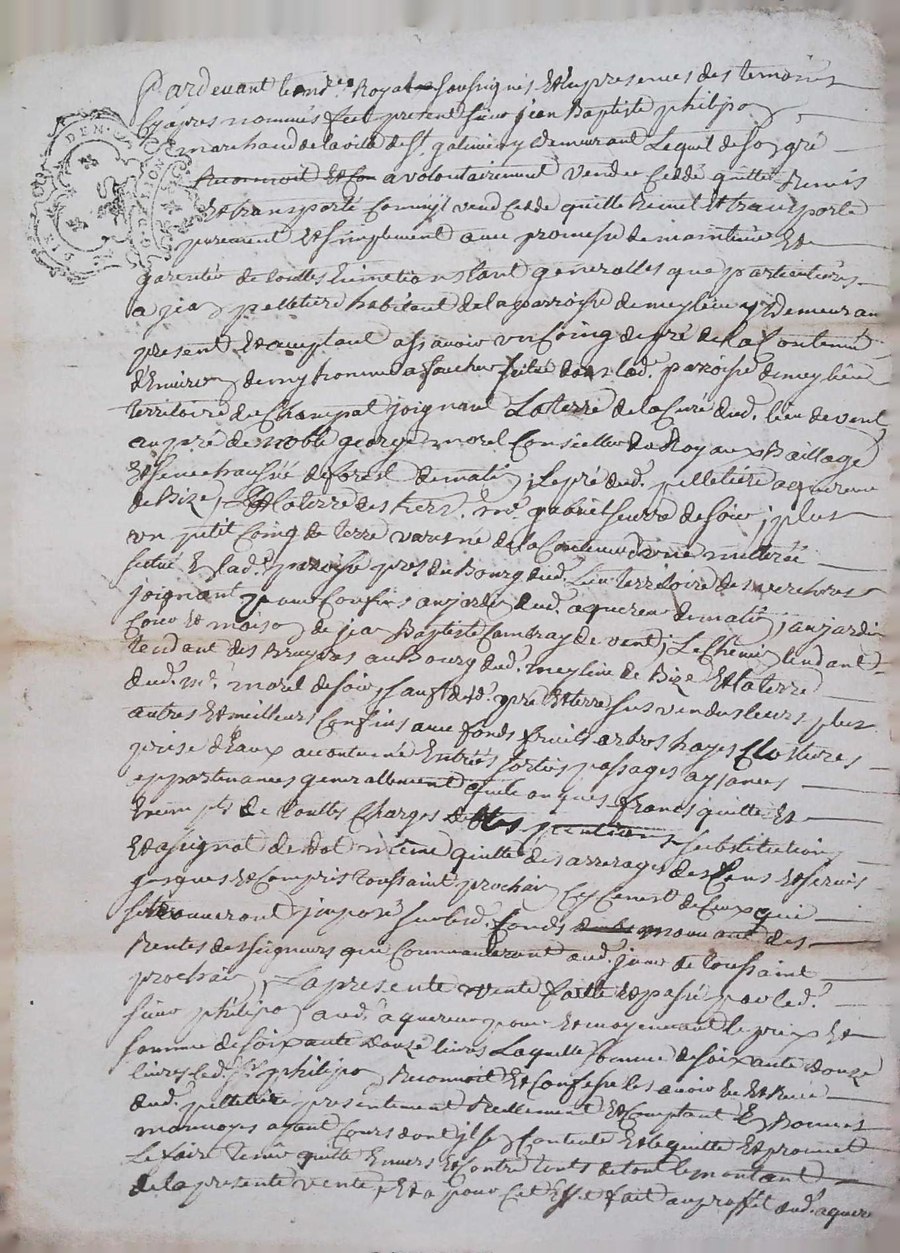 Pardevant le no.re Royal soussignés Et En presences des temoins
Cy apres nommés fut present sieur jean Baptiste philipon
marchand de la ville de St galmier y demeurant Lequel de son gré
Reconnoit Et Con a volontairement vendu Ceddé quitté Remis
Et transporté Comm'jl vend Cedde quitte Remet Et transporte
purement Et simplement avec promesse de maintenüe Et
garentie de touttes Evinctions tant generalles que particulieres
a jean pelletier habitant de la parroisse de meylieu y Demeurant
present Et acceptant assavoir un Coing de pré de la Contenue
d'Environ demy homme a faucher situé dans lad. parroisse de meylieu
territoire du Champat joignant La terre de la Cure dud. lieu de vent
au pré de noble george morel Conseiller du Roy aux Baillage
Et senechaussée de forest de matin, Le pré dud. pelletier acquereur
de Bize, Et La terre des hers. me. gabriel seurre de soir, plus
un petit Coing de terre varenne de la Contenue d'une metterée
situé En lad. paroisse pres du Bourg dud. Lieu territoire des verchores
joignant pour Confins au jardin dud. aquereur de matin, au jardin
Cour Et maison de jean Baptiste Combray de vent, Le Chemin tendant
tendant des Bruyeres au Bourg dud. meylieu de Bize Et la terre
dud. me. morel de soir, sauf desd. pré Et terre sus vendus leurs plus
autres Et meilleurs Confins avec fonds fruits arbres hayes Clostures
prise d'Eaux accoutumé Entrées sorties passages aysances
appartenances generallement quelconques francs quitte Et
Exempts de touttes Charges debtes pentions substitution
Et assignat de dot même quitte des arrerages des Cens Et servis
jusques Et Compris toussaint prochain Ce Cens de Ceux qui
se trouveront jmposé sur lesd. fonds mouvant des
Rentes des seigneurs qui Commanderont aud. jour de toussaint
prochain, La presente vente faitte Et passé par led.
sieur philipon aud. aquereur pour Et moyennant le prix Et
somme de soixante douze livres Laquelle somme de soixante douze
livres led. sr. philipon Reconnoit Et Confesse les avoir Eu Et Receu
dud. pelletier presentement Reellement Et Comptant En Bonnes
monnoyes ayant Cours dont jl se Contente Et le quitte Et promet
Le faire tenir quitte Envers Et Contre touts de tout le montant
de la presente vente, Et a pour Cet Effet fait au proffit dud. aquere